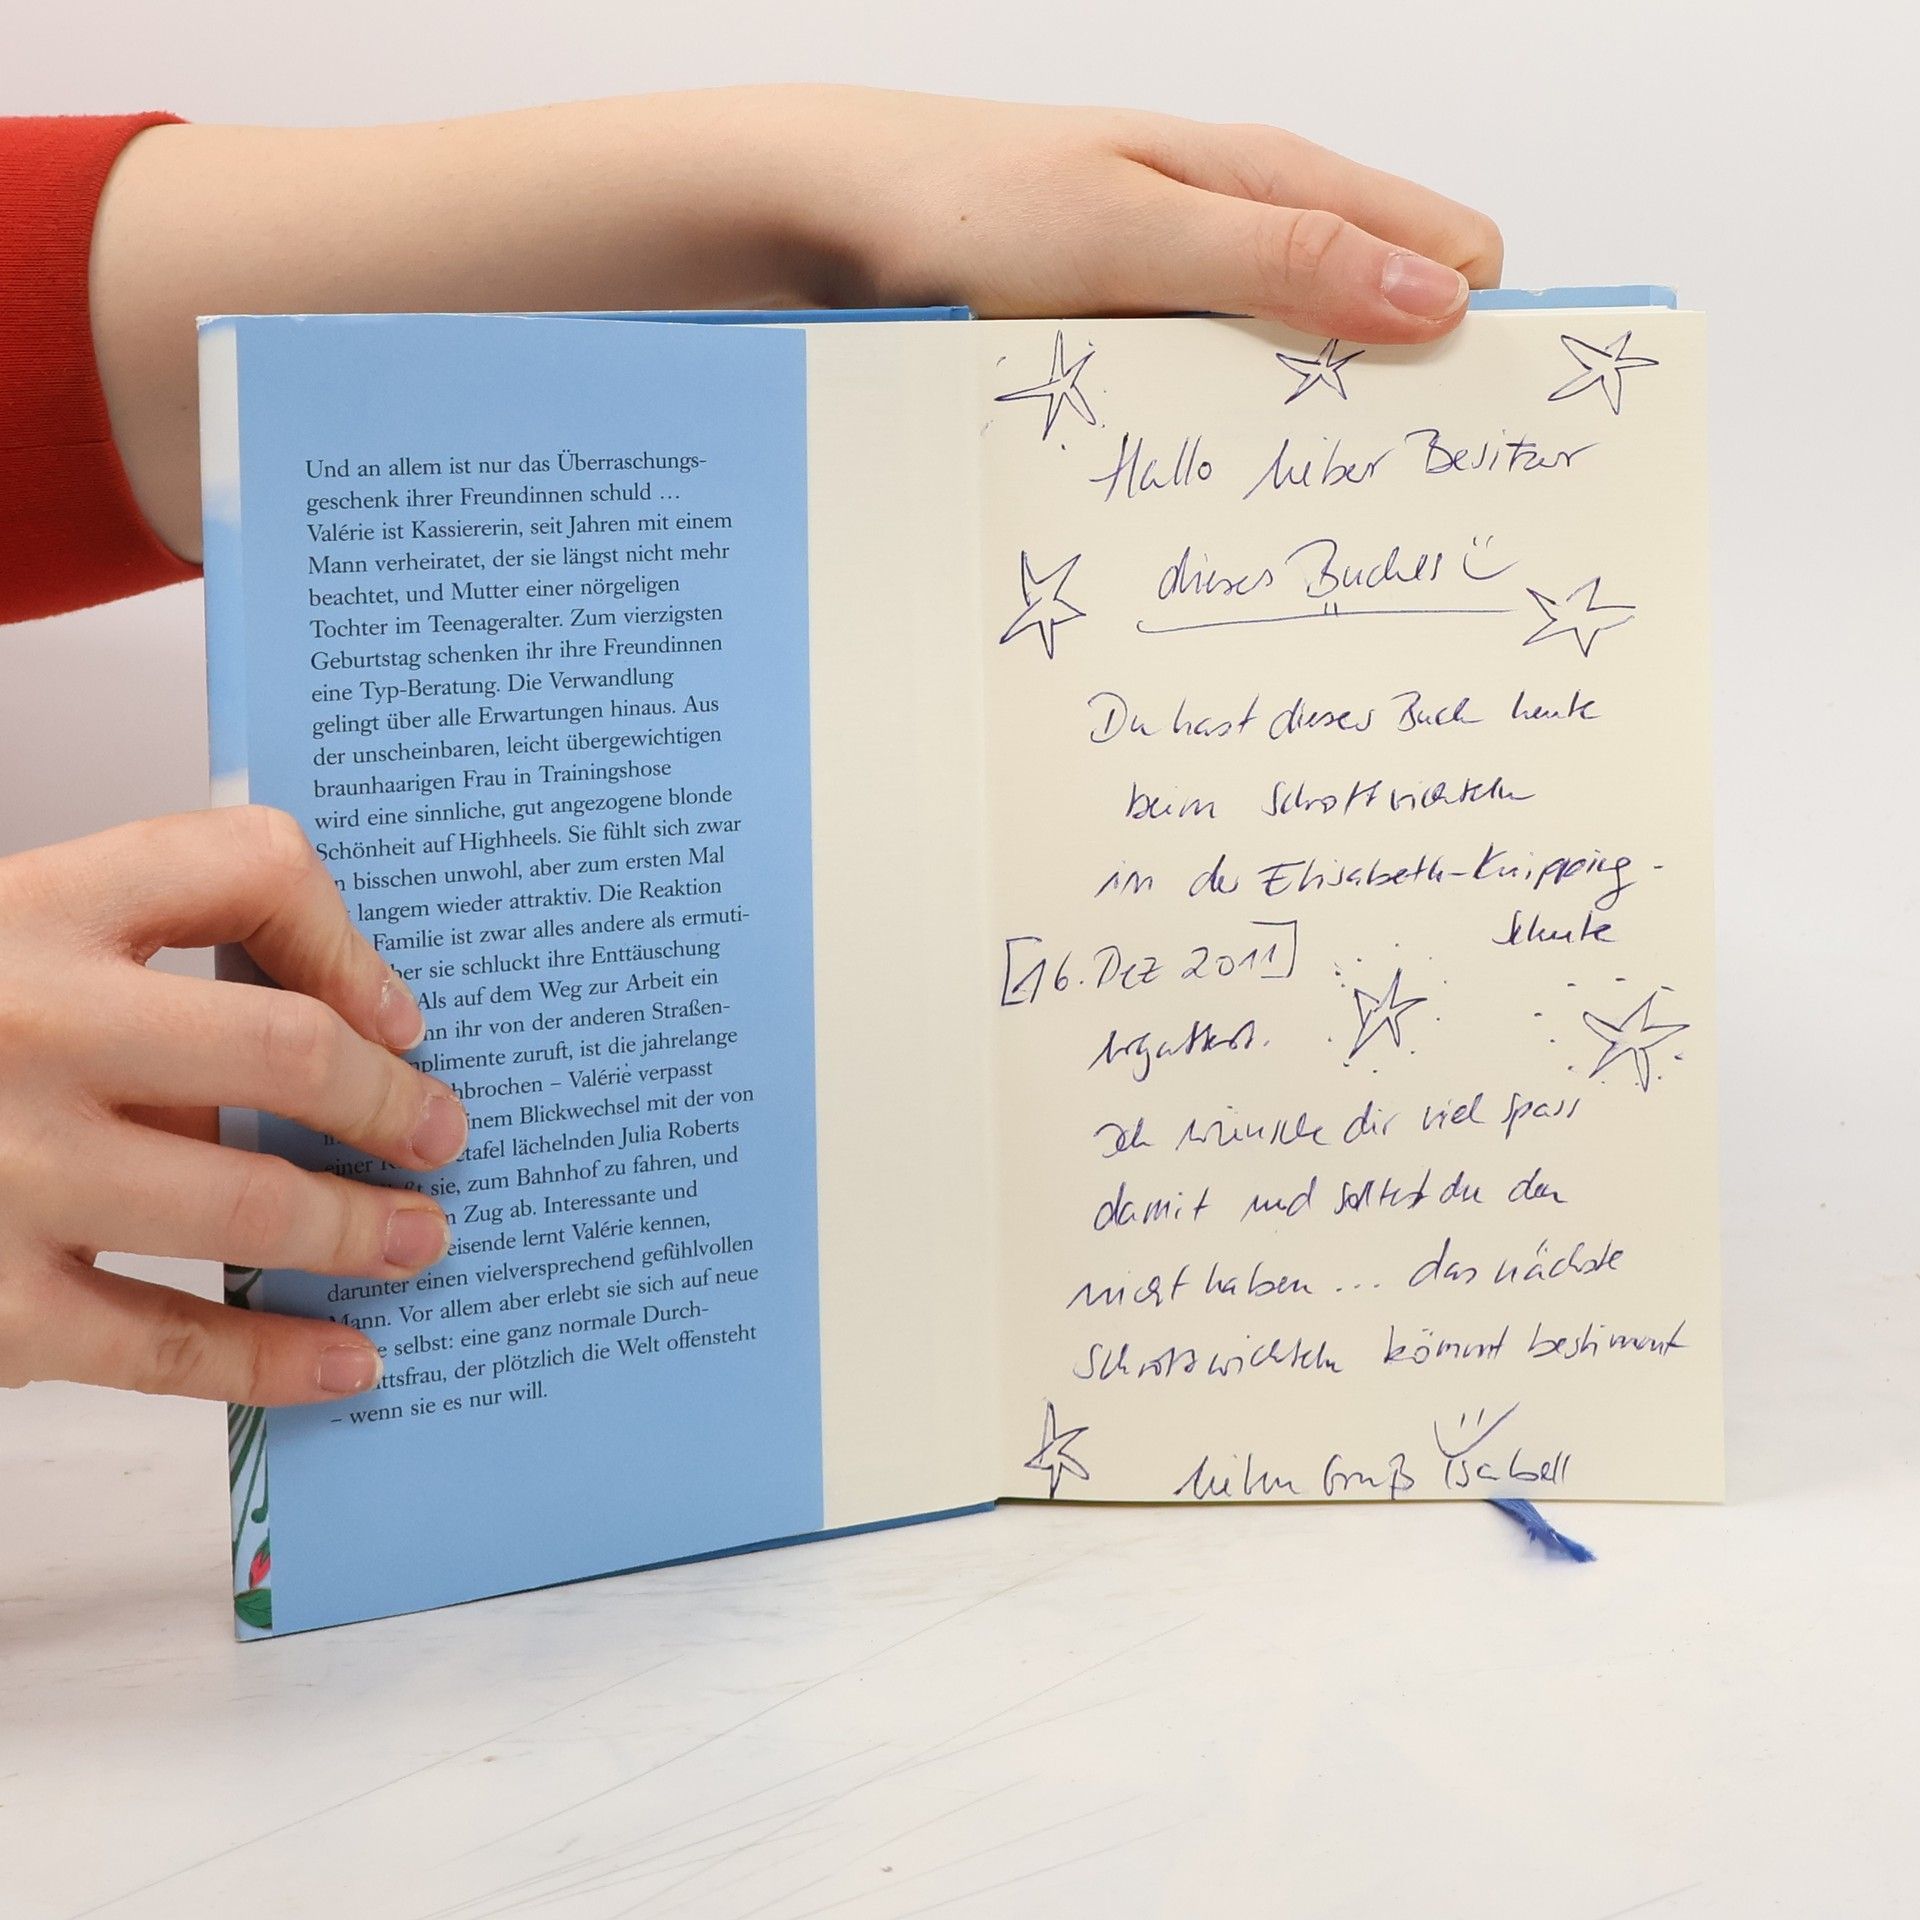 Und an allem ist nur das Überraschungs-
geschenk ihrer Freundinnen schuld ...
Valérie ist Kassiererin, seit Jahren mit einem
Mann verheiratet, der sie längst nicht mehr
beachtet, und Mutter einer nörgeligen
Tochter im Teenageralter. Zum vierzigsten
Geburtstag schenken ihr ihre Freundinnen
eine Typ-Beratung. Die Verwandlung
gelingt über alle Erwartungen hinaus. Aus
der unscheinbaren, leicht übergewichtigen
braunhaarigen Frau in Trainingshose
wird eine sinnliche, gut angezogene blonde
Schönheit auf Highheels. Sie fühlt sich zwar
bisschen unwohl, aber zum ersten Mal
langem wieder attraktiv. Die Reaktion
Familie ist zwar alles andere als ermuti-
sie schluckt ihre Enttäuschung
Als auf dem Weg zur Arbeit ein
ihr von der anderen Straßen-
zuruft, ist die jahrelange
– Valérie verpasst
Blickwechsel mit der von
einer lächelnden Julia Roberts
sie, zum Bahnhof zu fahren, und
Zug ab. Interessante und
lernt Valérie kennen,
darunter einen vielversprechend gefühlvollen
Mann. Vor allem aber erlebt sie sich auf neue
selbst: eine ganz normale Durch-
der plötzlich die Welt offensteht
– wenn sie es nur will.
Hallo lieber Besitzer
dieses Buches
Du hast dieses Buch heute
beim Schrottwichteln
in der Elisabeth-Knipping-
Schule
[16. Dez 2011]
ergattert.
Ich wünsche dir viel Spass
damit und solltest du den
nicht haben ... das nächste
Schrottwichteln kömmt bestimmt
lieben Gruß Isabell